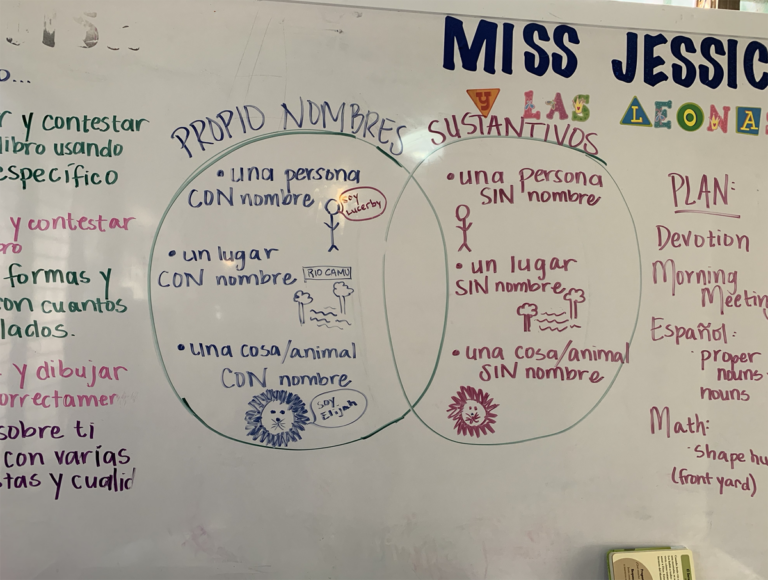 MISS JESSIC
Y LAS LEONAS
r y contestar
libro usando
específico
y contestar
formas y
on cuantos
lados.
y dibujar
orrectamer
sobre ti
con varías
tas y cualid
PROPIO NOMBRES
• una persona
CON nombre
soy
Lucerby
• un lugar
CON nombre
RIO CAMU
• una cosa/animal
CON nombre
soy
Elijah
SUSTANTIVOS
• una persona
SIN nombre
• un lugar
SIN nombre
• una cosa/animal
SIN nombre
PLAN:
Devotion
Morning
Meetin
Español:
· proper
nouns
nouns
Math:
· shape hu
(front yard)